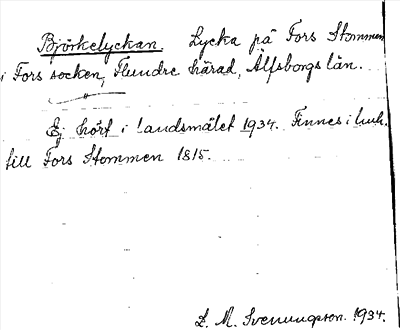 Björkelyckan. Lycka på Fors Stommen
i Fors socken, Flundre härad, Älfsborgs län.
Ej hört i landsmålet 1934. Finnes i huh.
till Fors Stommen 1815.
L. M. Svenungsson. 1934.